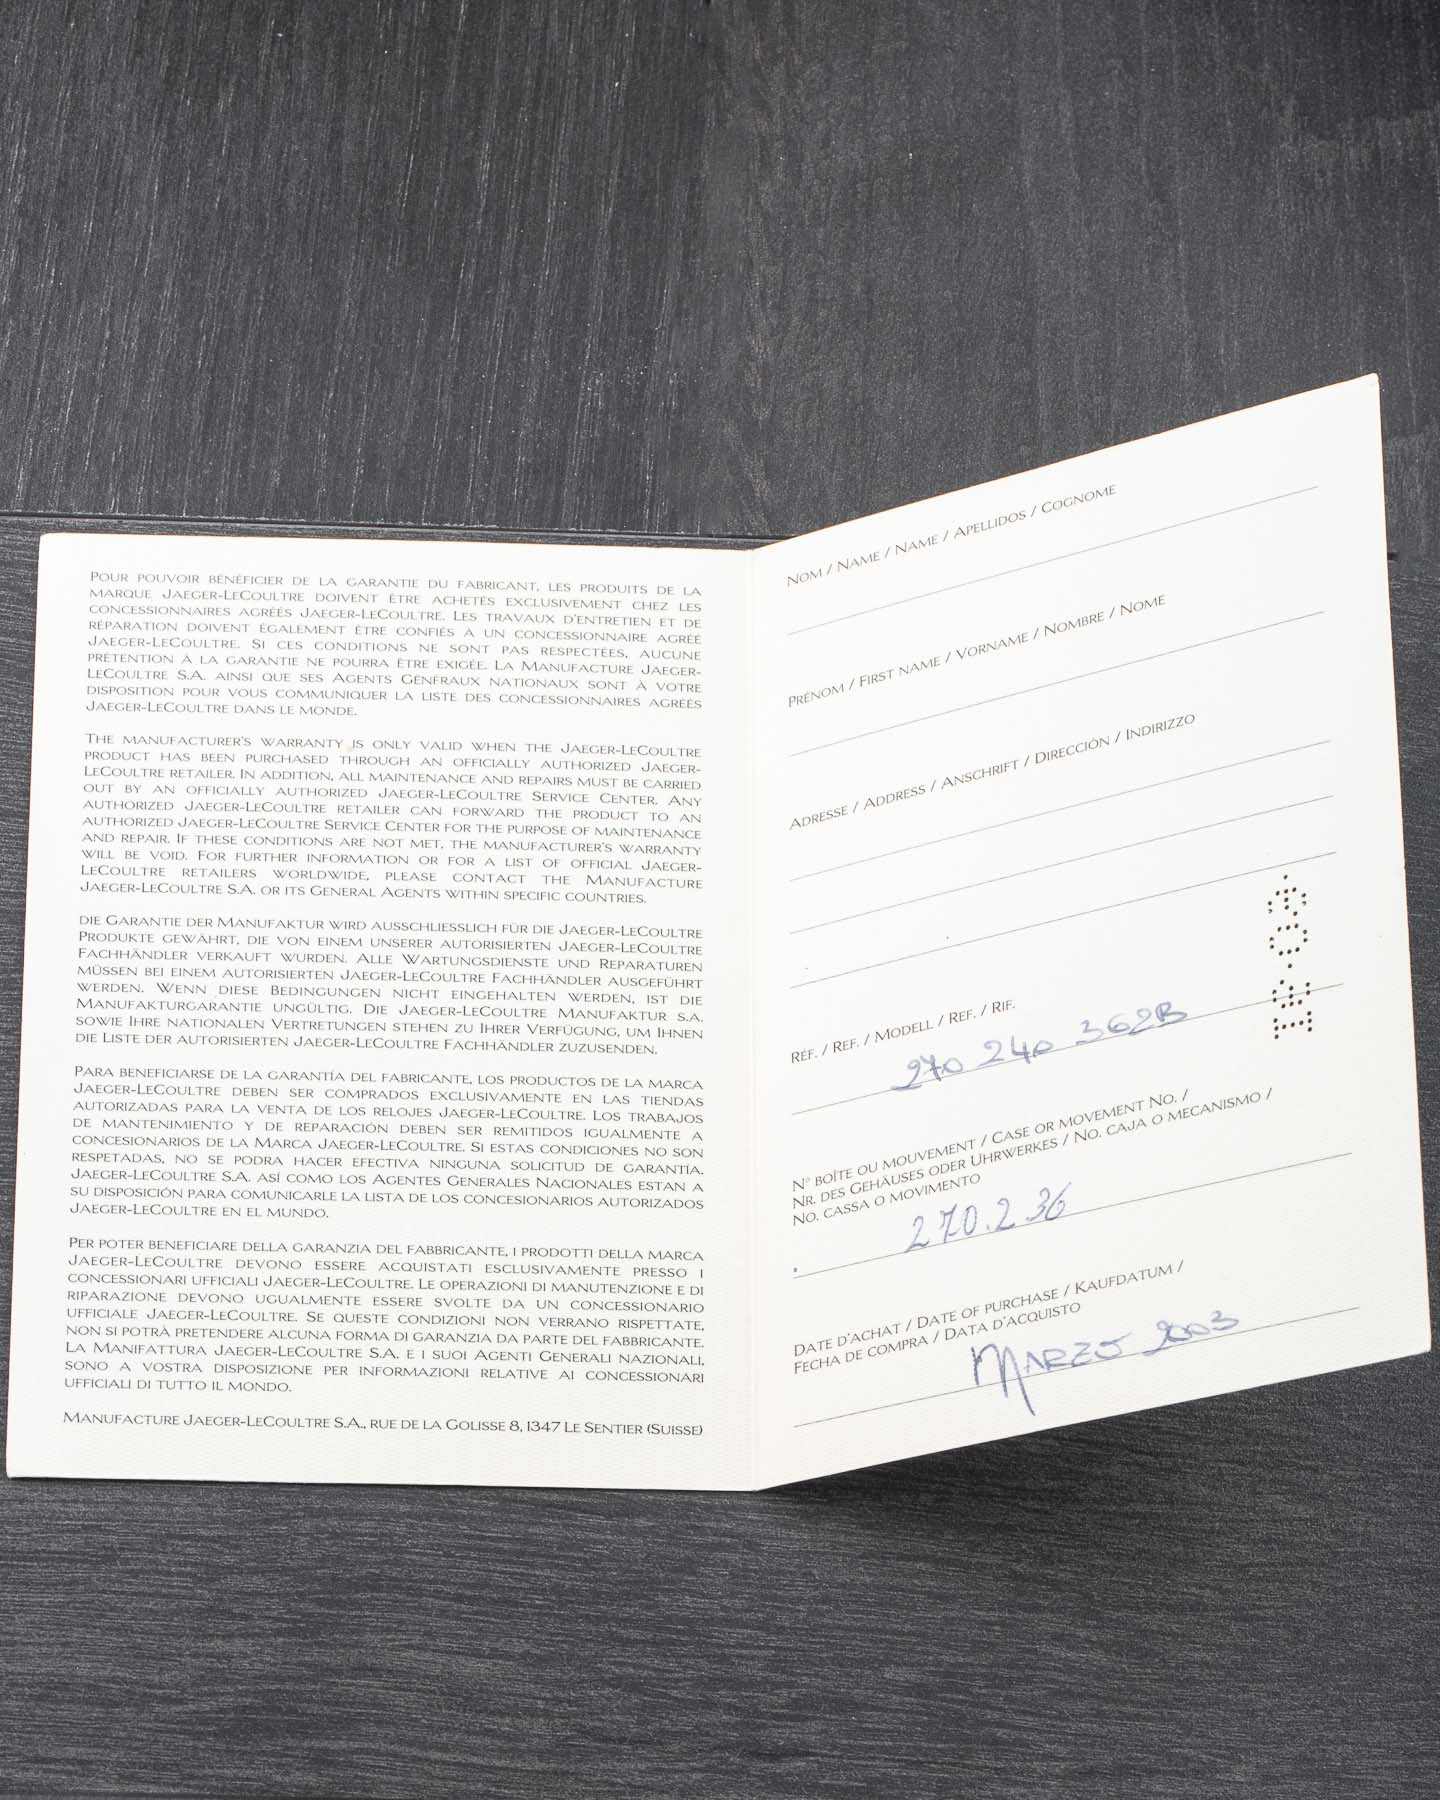 POUR POUVOIR BÉNÉFICIER DE LA GARANTIE DU FABRICANT, LES PRODUITS DE LA
MARQUE JAEGER-LECOULTRE DOIVENT ÊTRE ACHETÉS EXCLUSIVEMENT CHEZ LES
CONCESSIONNAIRES AGRÉÉS JAEGER-LECOULTRE. LES TRAVAUX D'ENTRETIEN ET DE
RÉPARATION DOIVENT ÉGALEMENT ÊTRE CONFIÉS À UN CONCESSIONNAIRE AGRÉÉ
JAEGER-LECOULTRE. SI CES CONDITIONS NE SONT PAS RESPECTÉES, AUCUNE
PRÉTENTION À LA GARANTIE NE POURRA ÊTRE EXIGÉE. LA MANUFACTURE JAEGER-
LECOULTRE S.A. AINSI QUE SES AGENTS GÉNÉRAUX NATIONAUX SONT À VOTRE
DISPOSITION POUR VOUS COMMUNIQUER LA LISTE DES CONCESSIONNAIRES AGRÉÉS
JAEGER-LECOULTRE DANS LE MONDE.
THE MANUFACTURER'S WARRANTY IS ONLY VALID WHEN THE JAEGER-LECOULTRE
PRODUCT HAS BEEN PURCHASED THROUGH AN OFFICIALLY AUTHORIZED JAEGER-
LECOULTRE RETAILER. IN ADDITION, ALL MAINTENANCE AND REPAIRS MUST BE CARRIED
OUT BY AN OFFICIALLY AUTHORIZED JAEGER-LECOULTRE SERVICE CENTER. ANY
AUTHORIZED JAEGER-LECOULTRE RETAILER CAN FORWARD THE PRODUCT TO AN
AUTHORIZED JAEGER-LECOULTRE SERVICE CENTER FOR THE PURPOSE OF MAINTENANCE
AND REPAIR. IF THESE CONDITIONS ARE NOT MET, THE MANUFACTURER'S WARRANTY
WILL BE VOID. FOR FURTHER INFORMATION OR FOR A LIST OF OFFICIAL JAEGER-
LECOULTRE RETAILERS WORLDWIDE, PLEASE CONTACT THE MANUFACTURE
JAEGER-LECOULTRE S.A. OR ITS GENERAL AGENTS WITHIN SPECIFIC COUNTRIES.
DIE GARANTIE DER MANUFAKTUR WIRD AUSSCHLIESSLICH FÜR DIE JAEGER-LECOULTRE
PRODUKTE GEWÄHRT, DIE VON EINEM UNSERER AUTORISIERTEN JAEGER-LECOULTRE
FACHHÄNDLER VERKAUFT WURDEN. ALLE WARTUNGSDIENSTE UND REPARATUREN
MÜSSEN BEI EINEM AUTORISIERTEN JAEGER-LECOULTRE FACHHÄNDLER AUSGEFÜHRT
WERDEN. WENN DIESE BEDINGUNGEN NICHT EINGEHALTEN WERDEN, IST DIE
MANUFAKTURGARANTIE UNGÜLTIG. DIE JAEGER-LECOULTRE MANUFAKTUR S.A.
SOWIE IHRE NATIONALEN VERTRETUNGEN STEHEN ZU IHRER VERFÜGUNG, UM IHNEN
DIE LISTE DER AUTORISIERTEN JAEGER-LECOULTRE FACHHÄNDLER ZUZUSENDEN.
PARA BENEFICIARSE DE LA GARANTÍA DEL FABRICANTE, LOS PRODUCTOS DE LA MARCA
JAEGER-LECOULTRE DEBEN SER COMPRADOS EXCLUSIVAMENTE EN LAS TIENDAS
AUTORIZADAS PARA LA VENTA DE LOS RELOJES JAEGER-LECOULTRE. LOS TRABAJOS
DE MANTENIMIENTO Y DE REPARACIÓN DEBEN SER REMITIDOS IGUALMENTE A
CONCESIONARIOS DE LA MARCA JAEGER-LECOULTRE. SI ESTAS CONDICIONES NO SON
RESPETADAS, NO SE PODRA HACER EFECTIVA NINGUNA SOLICITUD DE GARANTÍA.
JAEGER-LECOULTRE S.A. ASÍ COMO LOS AGENTES GENERALES NACIONALES ESTAN A
SU DISPOSICIÓN PARA COMUNICARLE LA LISTA DE LOS CONCESIONARIOS AUTORIZADOS
JAEGER-LECOULTRE EN EL MUNDO.
PER POTER BENEFICIARE DELLA GARANZIA DEL FABBRICANTE, I PRODOTTI DELLA MARCA
JAEGER-LECOULTRE DEVONO ESSERE ACQUISTATI ESCLUSIVAMENTE PRESSO I
CONCESSIONARI UFFICIALI JAEGER-LECOULTRE. LE OPERAZIONI DI MANUTENZIONE E DI
RIPARAZIONE DEVONO UGUALMENTE ESSERE SVOLTE DA UN CONCESSIONARIO
UFFICIALE JAEGER-LECOULTRE. SE QUESTE CONDIZIONI NON VERRANO RISPETTATE,
NON SI POTRÀ PRETENDERE ALCUNA FORMA DI GARANZIA DA PARTE DEL FABBRICANTE.
LA MANIFATTURA JAEGER-LECOULTRE S.A. E I SUOI AGENTI GENERALI NAZIONALI,
SONO A VOSTRA DISPOSIZIONE PER INFORMAZIONI RELATIVE AI CONCESSIONARI
UFFICIALI DI TUTTO IL MONDO.
MANUFACTURE JAEGER-LECOULTRE S.A., RUE DE LA GOLISSE 8, 1347 LE SENTIER (SUISSE)
NOM / NAME / NAME / APELLIDOS / COGNOME
PRÉNOM / FIRST NAME / VORNAME / NOMBRE / NOME
ADRESSE / ADDRESS / ANSCHRIFT / DIRECCIÓN / INDIRIZZO
RÉF. / REF. / MODELL / REF. / RIF.
270 240 362B
N° BOÎTE OU MOUVEMENT / CASE OR MOVEMENT NO. /
NR. DES GEHÄUSES ODER UHRWERKES / NO. CAJA O MECANISMO /
NO. CASSA O MOVIMENTO
270.2.36
DATE D'ACHAT / DATE OF PURCHASE / KAUFDATUM /
FECHA DE COMPRA / DATA D'ACQUISTO
MARZO 2003